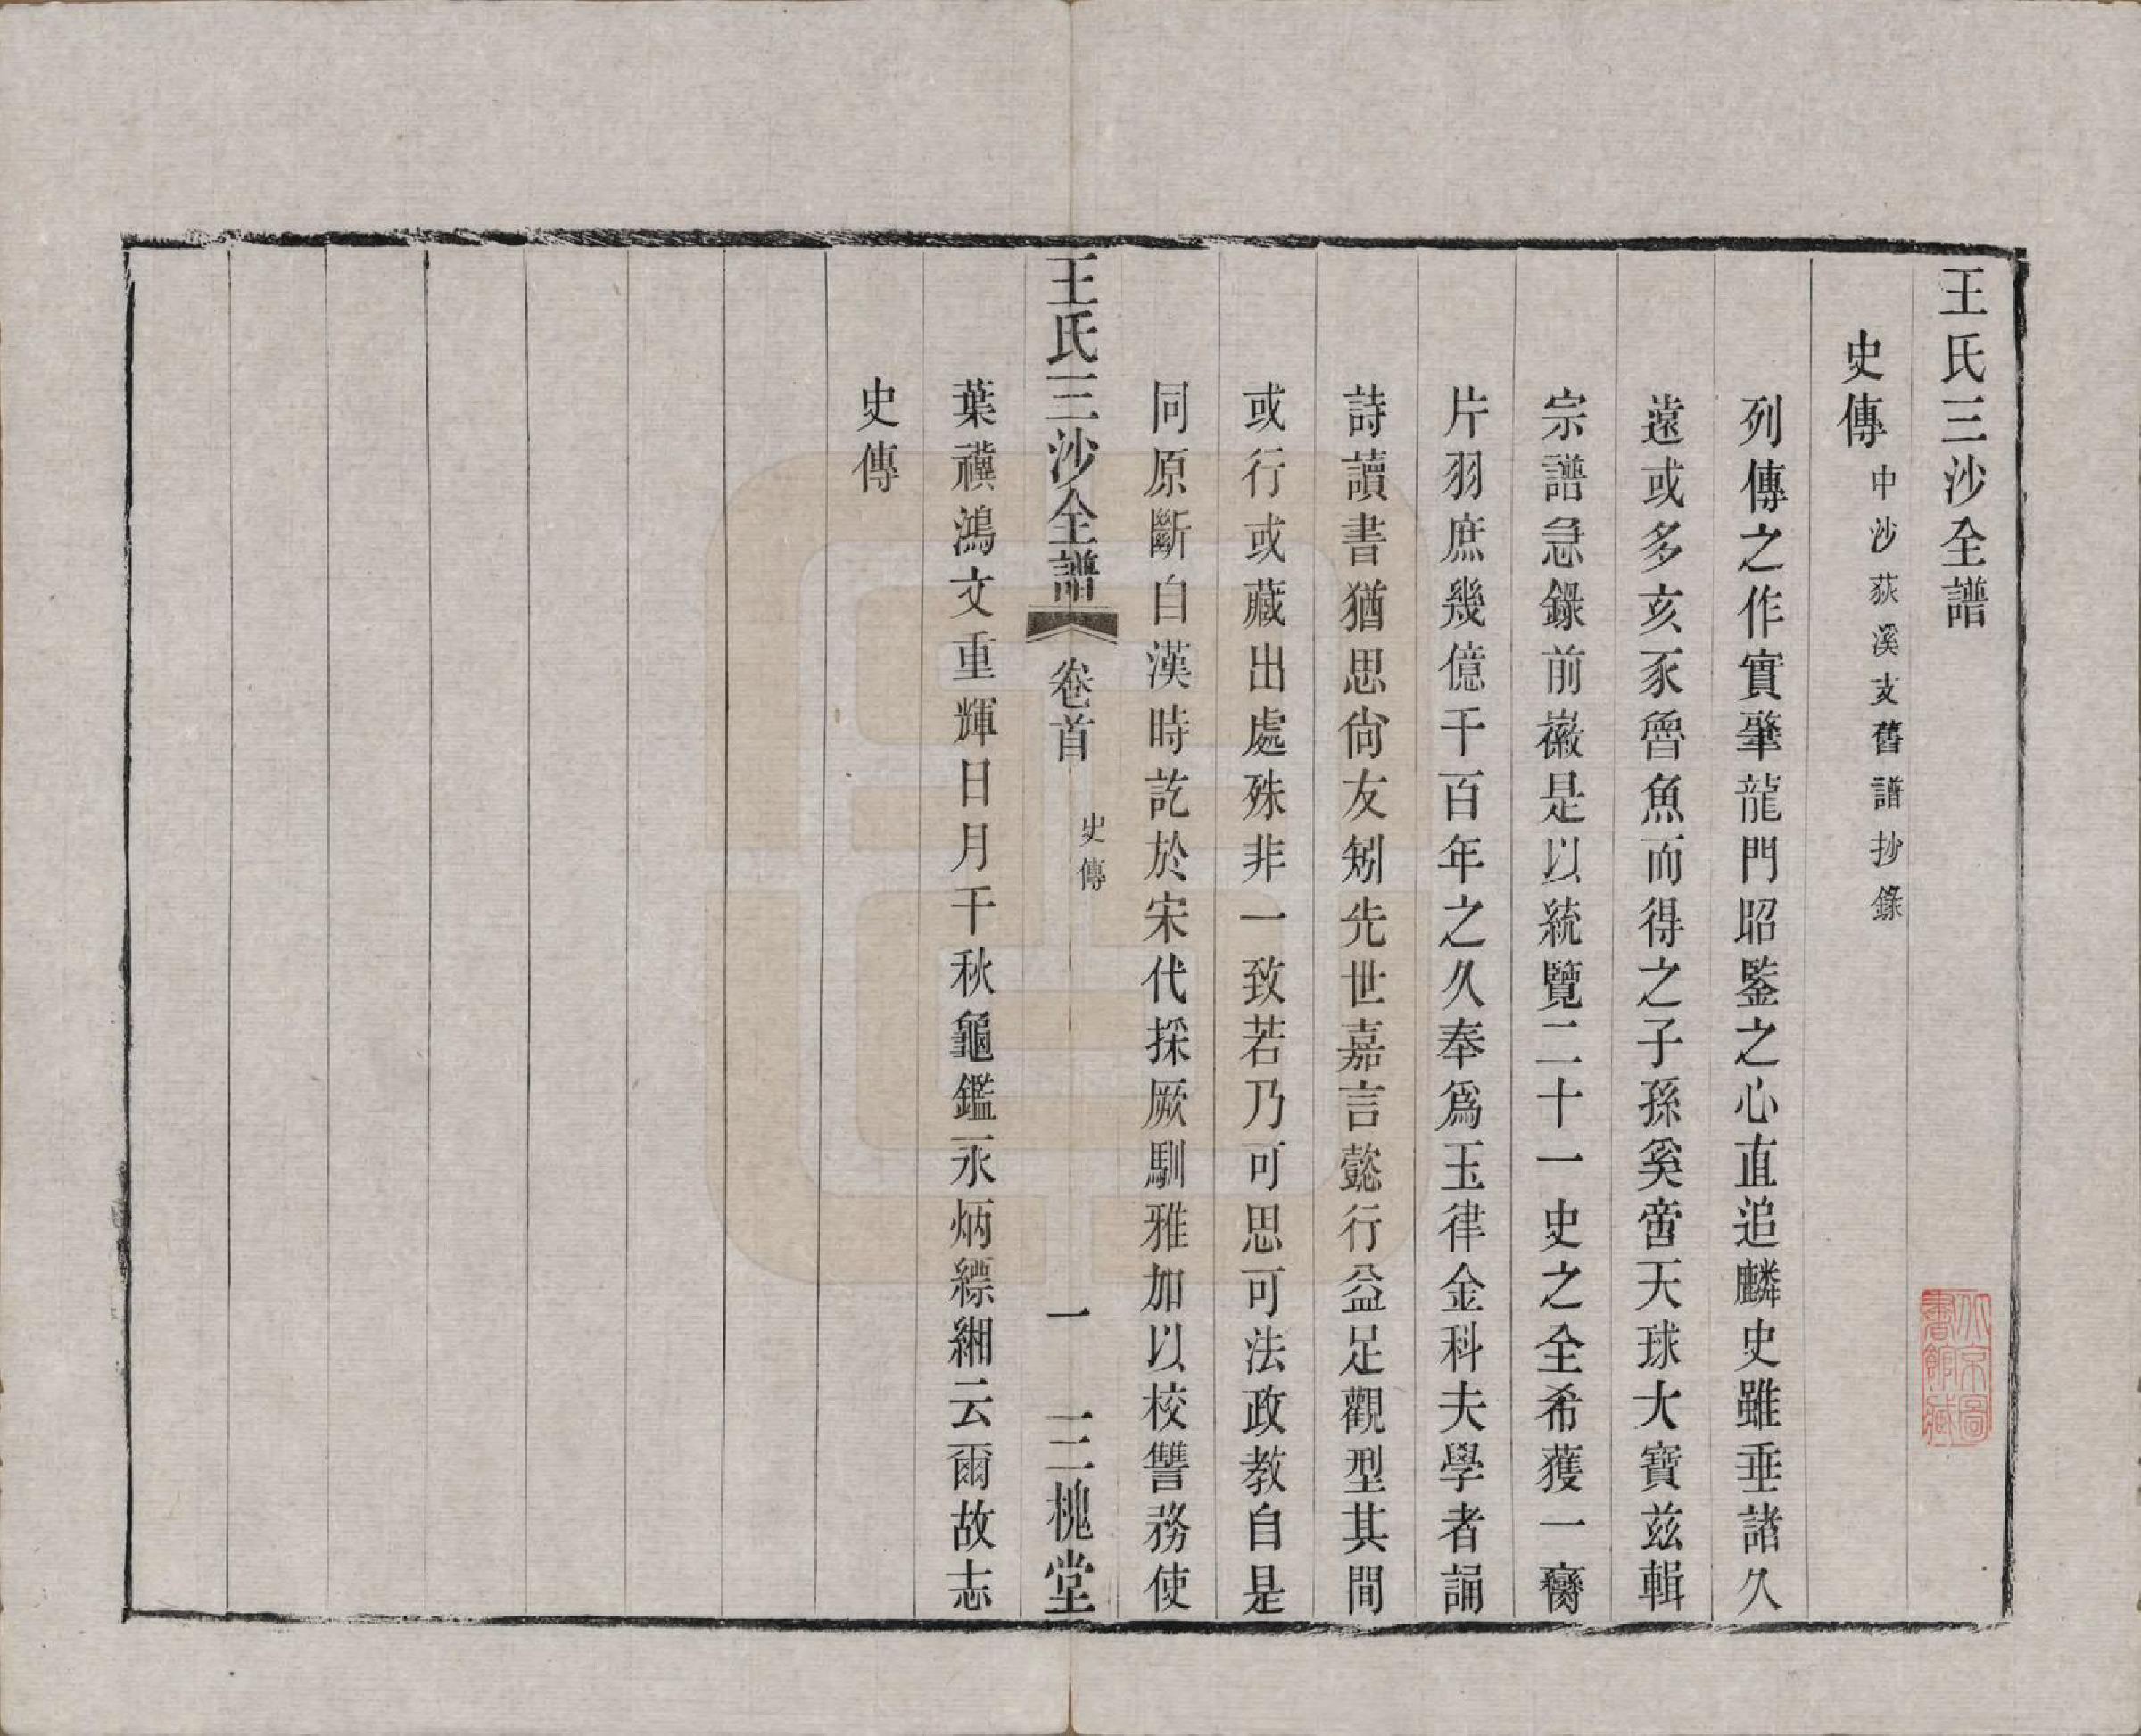 王氏三沙全譜
史傳 中沙荻溪支舊譜抄錄
列傳之作實肇龍門昭鍳之心直追麟史雖垂諸久
遠或多亥豕魯魚而得之子孫奚啻天球大寶兹輯
宗譜急錄前徽是以統覽二十一史之全希獲一臠
片羽庶幾億千百年之久奉爲玉律金科夫學者誦
詩讀書猶思尙友矧先世嘉言懿行益足觀型其間
或行或藏出處殊非一致若乃可思可法政教自是
同原斷自漢時訖於宋代採厥馴雅加以校讐務使
王氏三沙全譜 卷首 史傳 一 三槐堂
葉禩鴻文重輝日月千秋龜鑑永炳縹緗云爾故志
史傳
北京圖書館藏